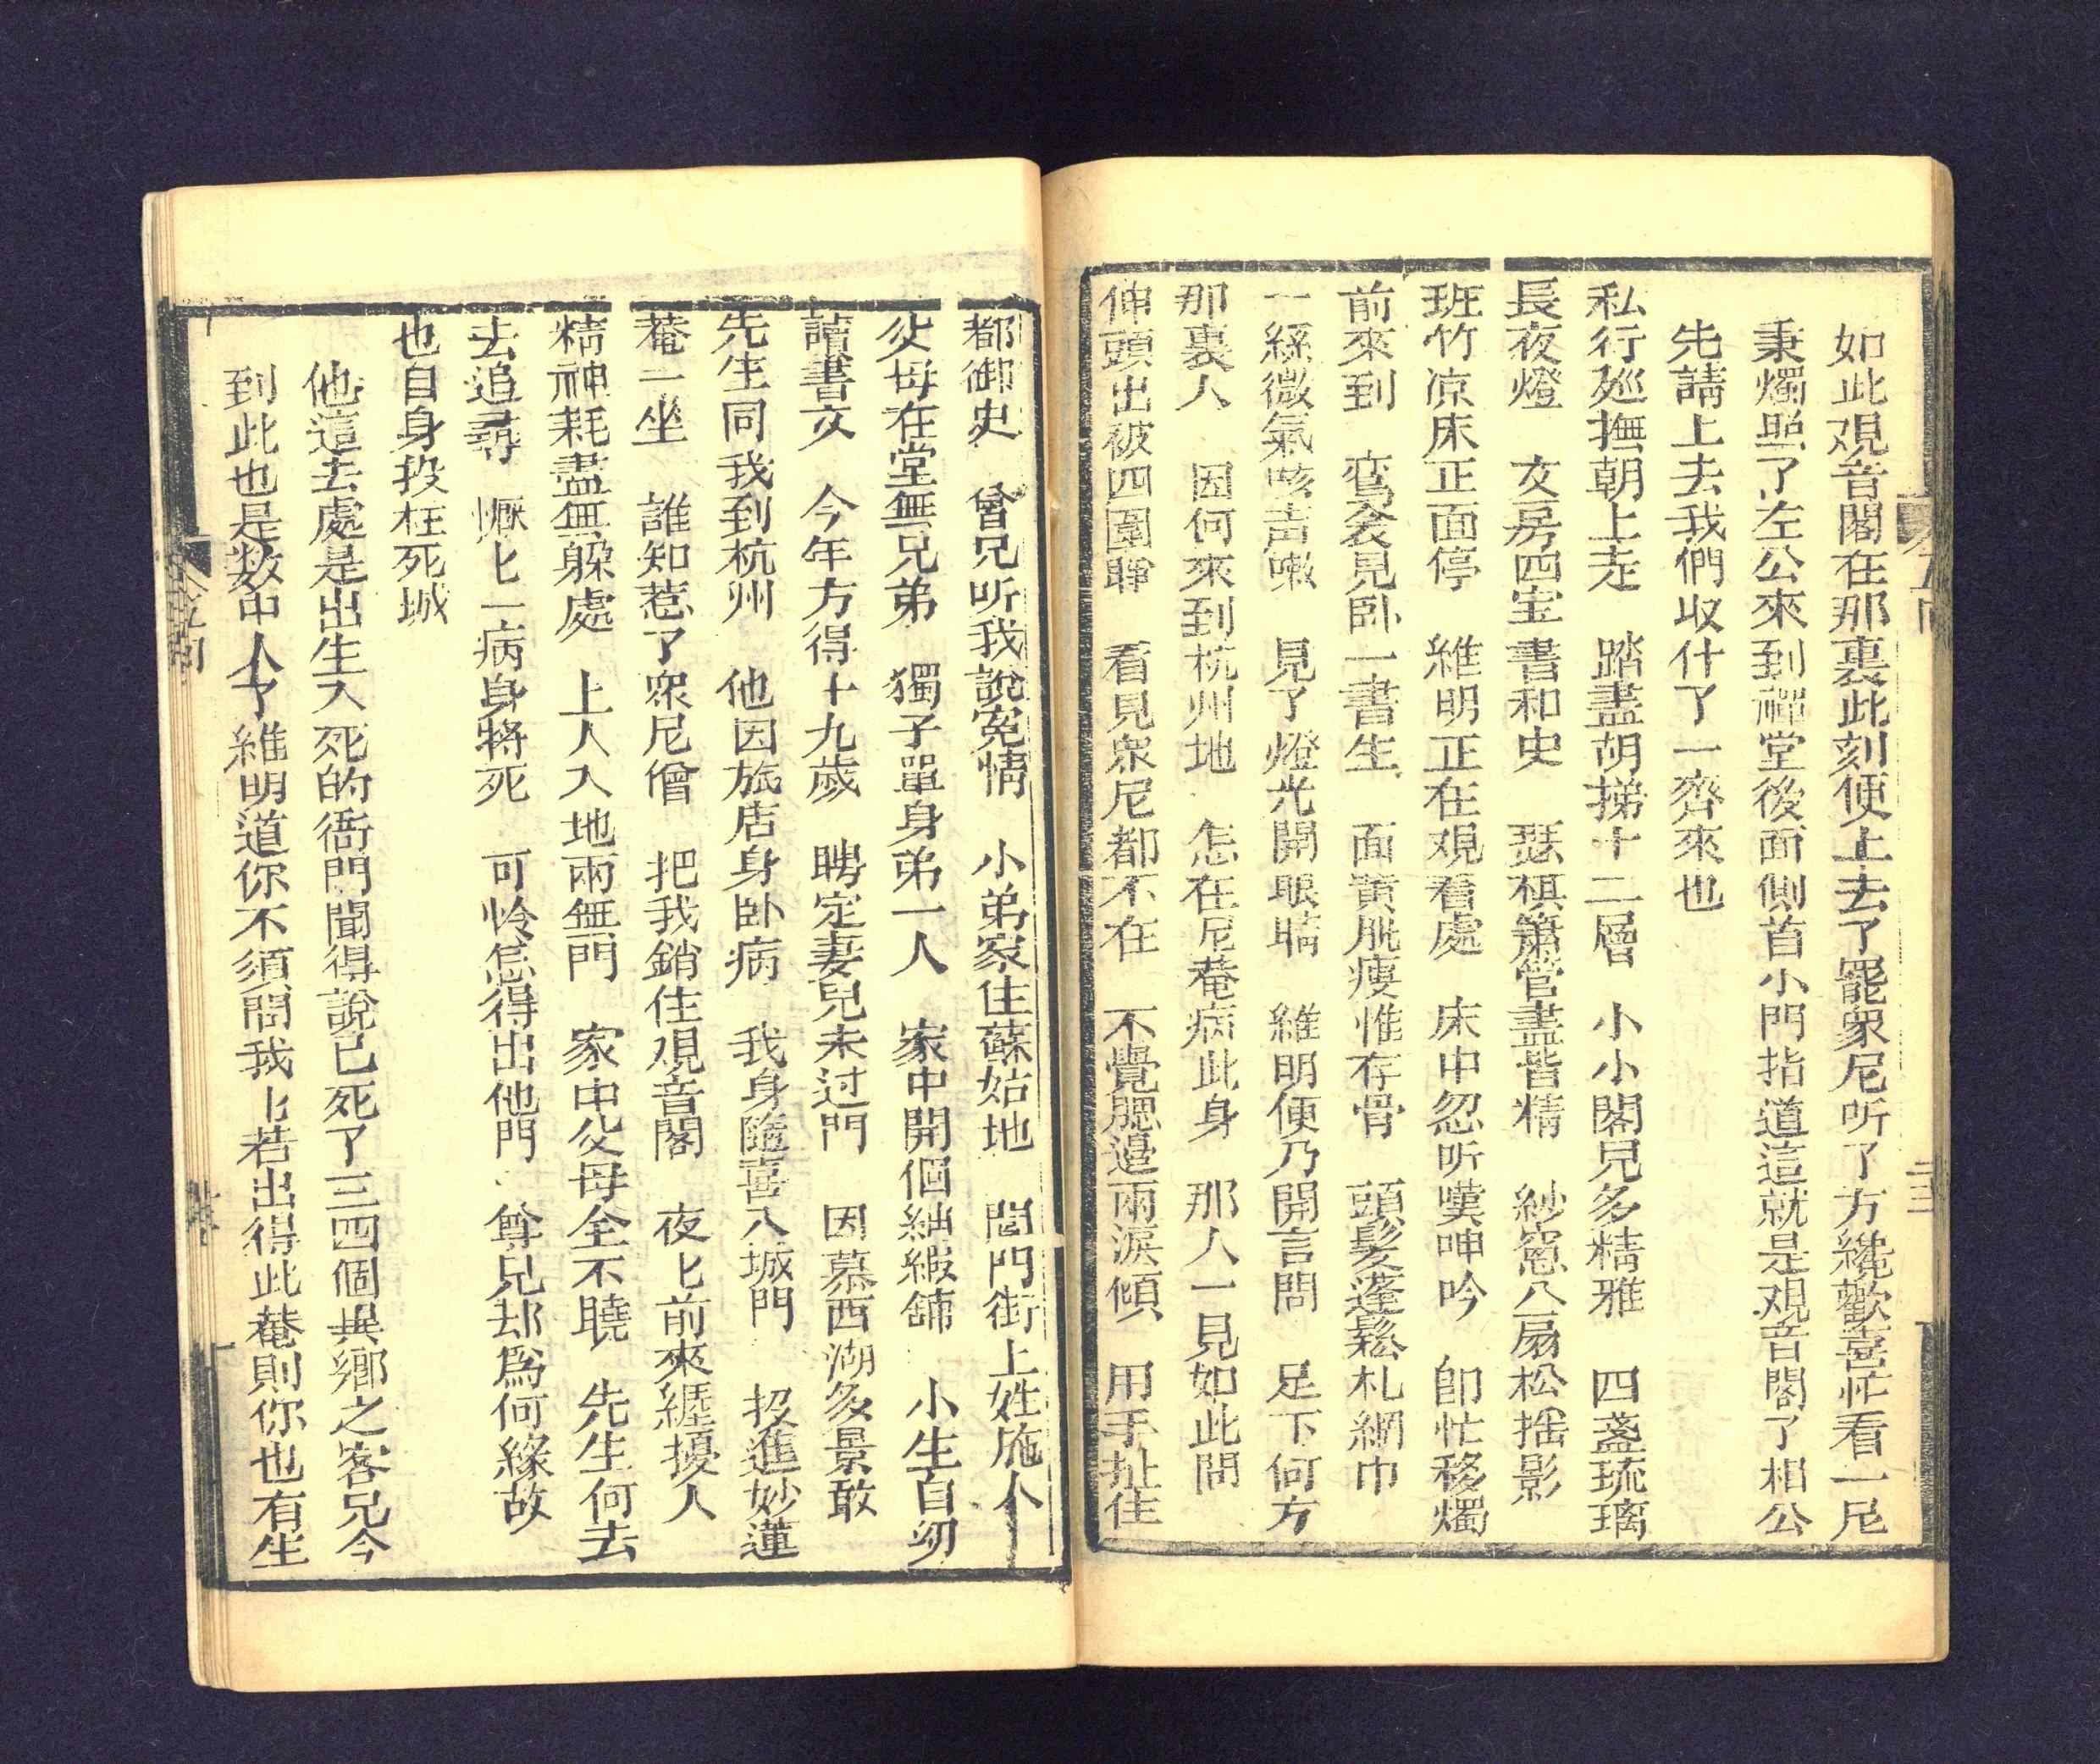 如此观音閣在那裏此刻便上去了罷衆尼听了方纔歡喜忙看一尼
秉燭照了左公來到禪堂後面側首小門指道這就是观音閣了相公
先請上去我們收什了一齊來也
私行廵撫朝上走　踏盡胡掦十二層　小小閣兒多精雅　四盞琉璃
長夜燈　文房四宝書和史　琴棋簫管盡皆精　紗窓八扇松揺影
班竹凉床正面停　維明正在观看處　床中忽听嘆呻吟　卽忙移燭
前來到　鸾衾見卧一書生　面黄肌瘦惟存骨　頭髮蓬鬆札網巾
一絲微氣咳声嗽　見了燈光開眼睛　維明便乃開言問　足下何方
那裏人　因何來到杭州地　怎在尼菴病此身　那人一見如此問
伸頭出被四圍睁　看見衆尼都不在　不覺腮邉兩淚傾　用手扯住
都御史　曾兄听我說寃情　小弟家住蘇姑地　閶門街上姓施人
父母在堂無兄弟　獨子單身弟一人　家中開個紬緞鋪　小生自㓜
讀書文　今年方得十九歲　聘定妻兒未过門　因慕西湖多景致
先生同我到杭州　他因旅店身卧病　我身隨喜入城門　投進妙蓮
菴一坐　誰知惹了衆尼僧　把我銷住观音閣　夜匕前來纒擾人
精神耗盡無躲處　上人入地兩無門　家中父母全不曉　先生何去
去追尋　懨匕一病身將死　可怜怎得出他門　尊兄却爲何緣故
也自身投枉死城
他這去處是出生入死的衙門聞得說已死了三四個異鄉之客兄今
到此也是数中人了維明道你不須問我匕若出得此菴則你也有生